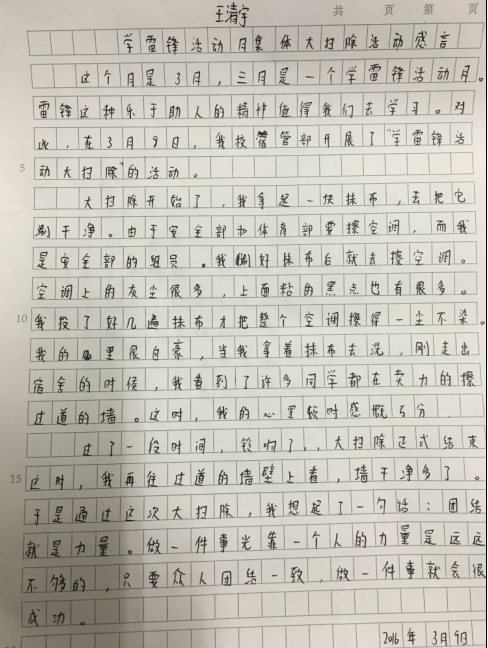 王清宇
共 页 第 页
学雷锋活动月集体大扫除活动感言
这个月是3月,三月是一个学雷锋活动月。
雷锋这种乐于助人的精神值得我们去学习。对
此,在3月9日,我校管部开展了"学雷锋活
5
动大扫除"的活动。
大扫除开始了,我拿起一块抹布,去把它
刷干净。由于安全部和体育部要擦空调,而我
是安全部的组员。我刷好抹布后就去擦空调。
空调上的灰尘很多,上面粘的黑点也有很多。
10
我投了好几遍抹布才把整个空调擦得一尘不染。
我的里很自豪,当我拿着抹布去洗,刚走出
宿舍的时候,我看到了许多同学都在卖力的擦
过道的墙。这时,我的心里顿时感慨万分.
过了一段时间,铃响了,大扫除正式结束
15
这时,我再往过道的墙壁上看,墙干净多了。
于是通过这次大扫除,我想起了一句话:团结
就是力量。做一件事光靠一个人的力量是远远
不够的,只要众人团结一致,做一件事就会很
成功。
2016年3月9日